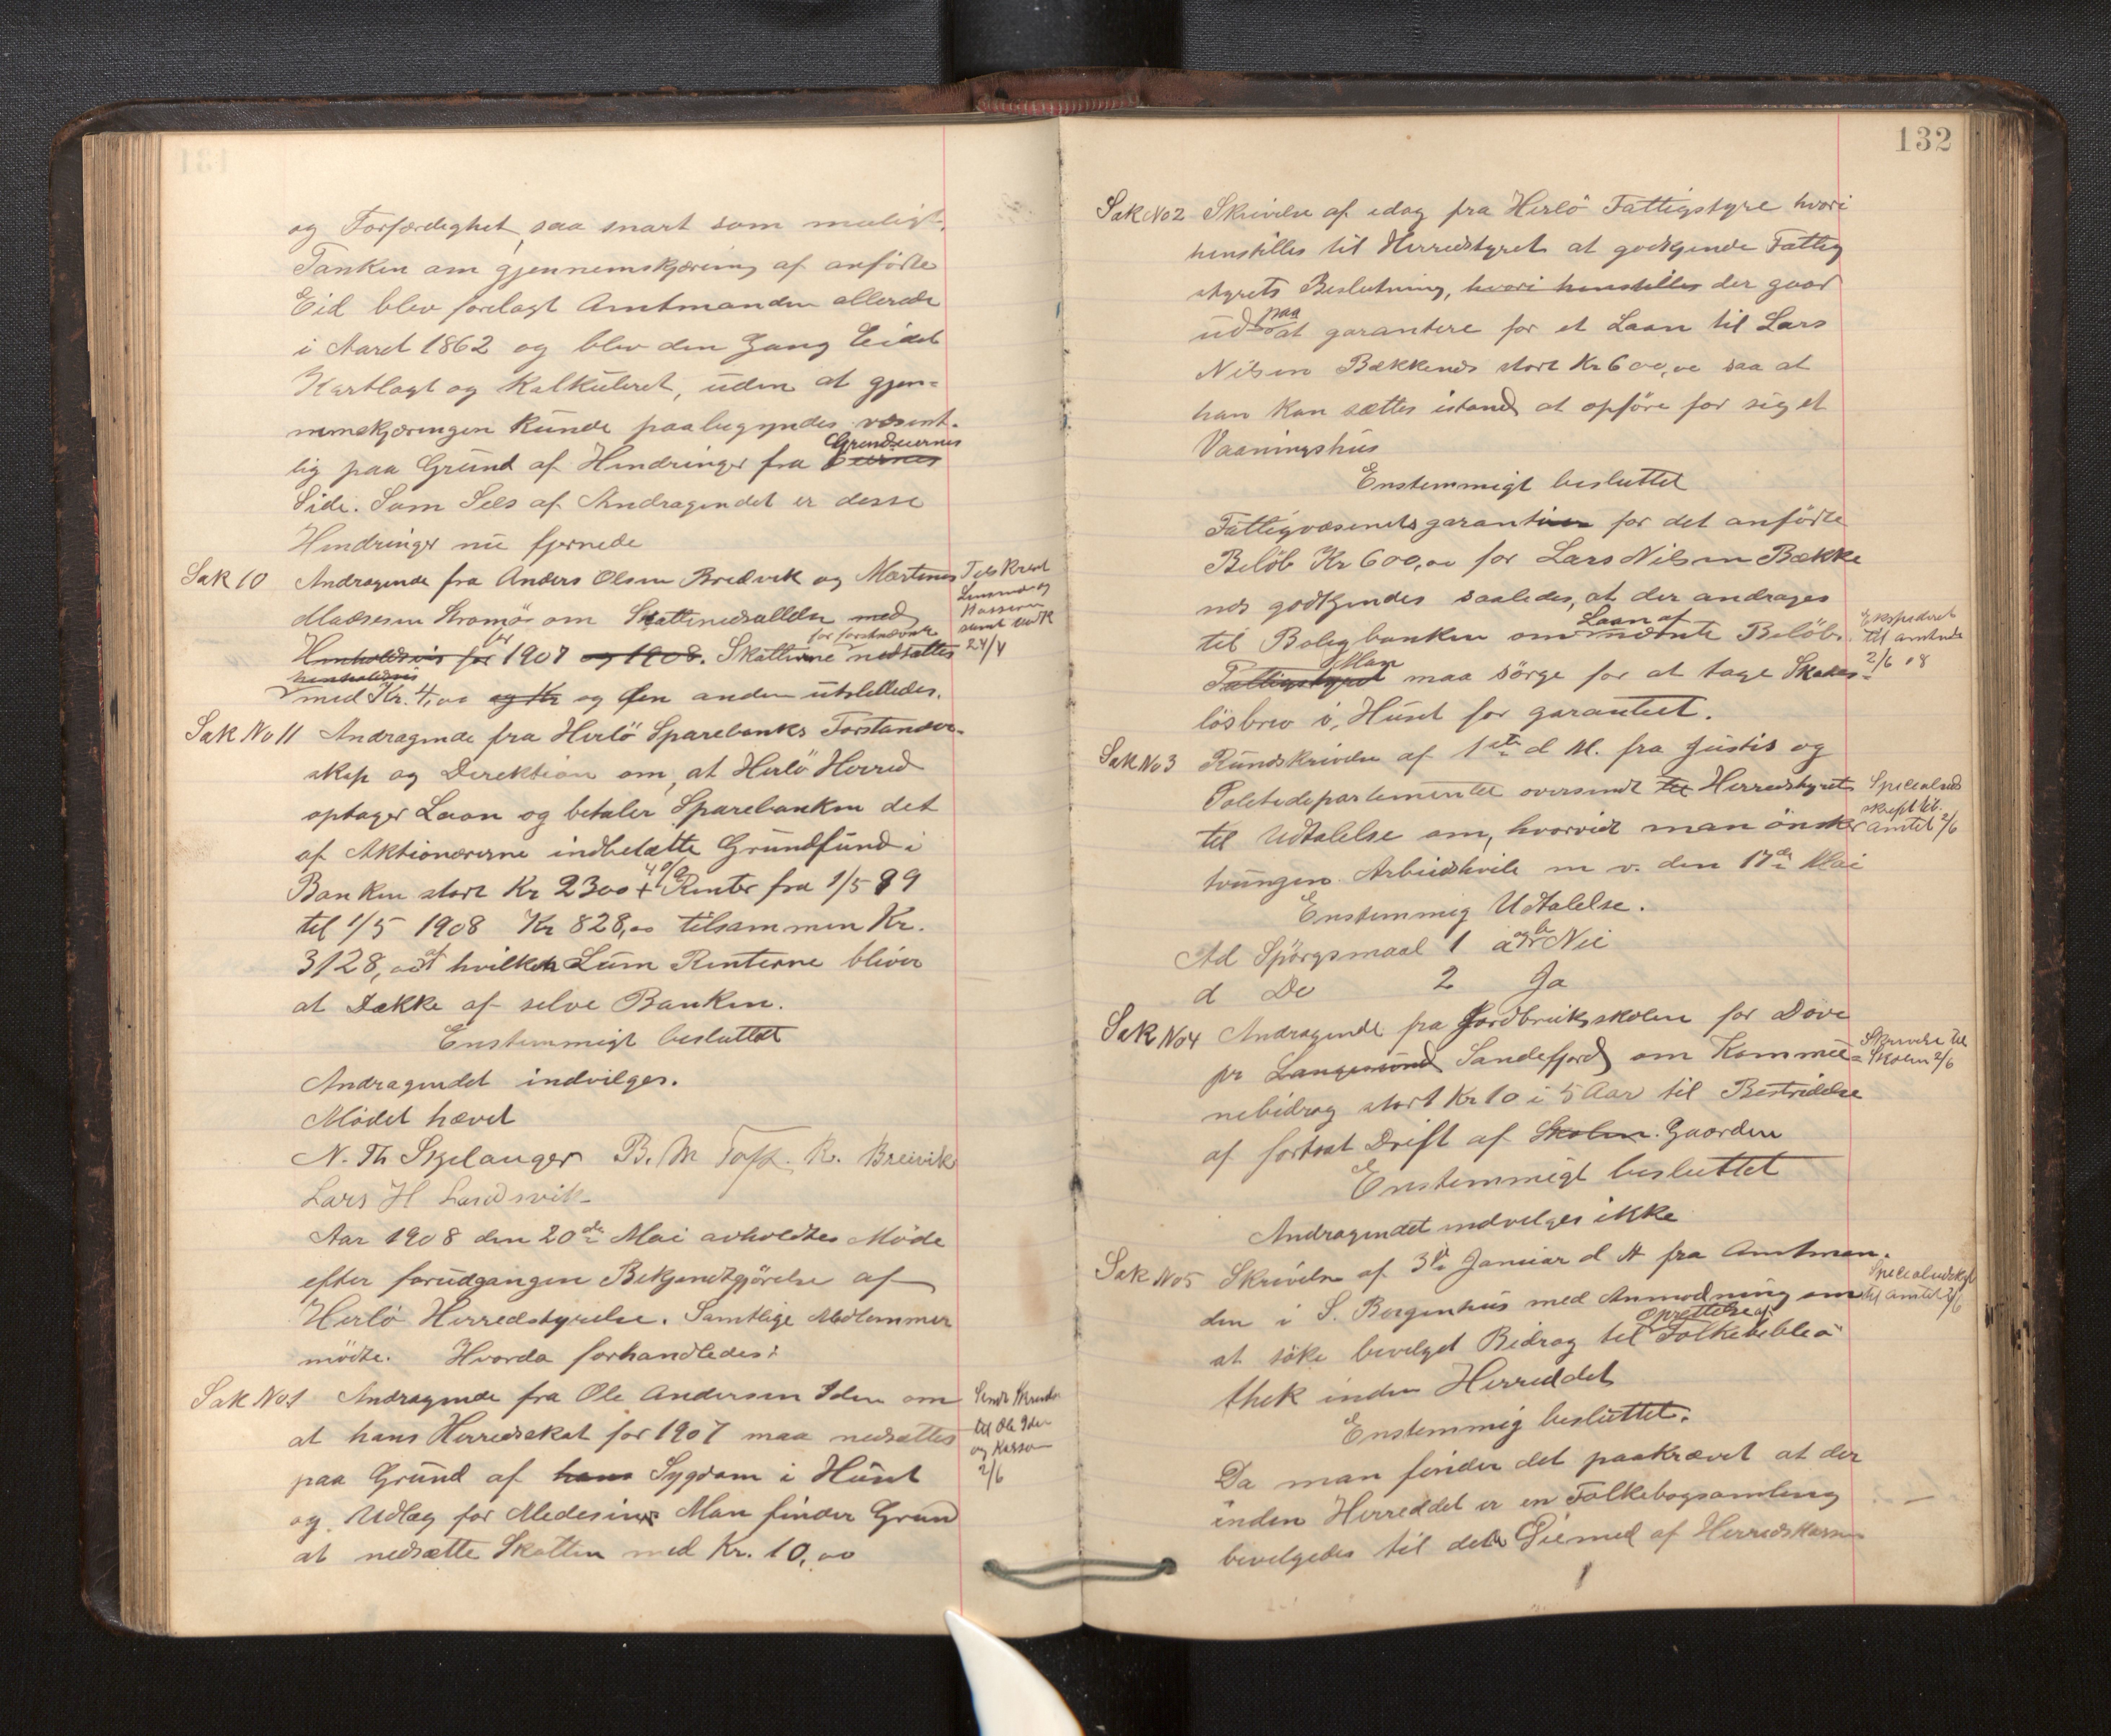 og Forfærdighet, saa snart som muligt.
Tanken om gjennemskjæring af anførte
Eid blev forelagt Amtmanden allerede
i Aaret 1862 og blev den Gang Eidet
Kartlagt og Kalkuleret, uden at gjen-
nemskjæringen Kunde paabegyndes væsent-
lig paa Grund af Hindringer fra Eiernes Grundeiernes
Side. Som Sees af Andragendet er desse
Hindringer nu fjernede
Sak 10 Andragende fra Anders Olsen Bredvik og Martines
Madsesen Kromø om Skattenedsættelse med
Henholdsvis for for 1907 og 1908. Skatterne for førstnævnte nedsættes
henholdsvis
med Kr. 4,00 og Kr og den anden utslettedes.
Tilskrevet
Lensmand og
Kasserer
samt
24/4
Sak No 11 Andragende fra Herlö Sparebanks Forstander-
skap og Direktion om, at Herlö Herred
optager Laan og betaler Sparebanken det
af Aktionærerne indbetalte Grundfund i
Banken stort Kr 2300 + 4 0/0 Renter fra 1/5 99
til 1/5 1908 Kr 828,00 tilsammen Kr.
3128,00 af hvilken Sum Renterne bliver
at Dække af selve Banken.
Enstemmigt besluttet
Andragendet indvilges.
Mödet hævet
N. Th Skjelanger B. M Toft. R. Breivik
Lars H Landsvik
Aar 1908 den 20de Mai avholdtes Möde
efter forudgangen Bekjendtgjörelse af
Herlö Herredstyrelse. Samtlige Medlemmer
mödte. Hvorda forhandledes:
Sak No 1 Andragende fra Ole Andersen Iden om
at hans Herredsskat for 1907 maa nedsættes
paa Grund af hans Sygdom i Huset
og Udlæg for Medesiner Man finder Grund
at nedsætte Skatten med Kr. 10,00
Sendt Skrivelse
til Ole Iden
og Kasse
2/6
132
Sak No 2 Skrivelse af idag fra Herlö Fattigstyre hvori
henstilles til Herredstyret at godkjende Fattig
styrets Beslutning, hvori henstilles der gaar
ud paa at garantere for et Laan til Lars
Nilsen Bækkenes stort Kr 600,00 saa at
han kan sættes istand at opföre for sig et
Vaaningshus
Enstemmigt besluttet
Fattigvæsenets garantien for det anförte
Belöb Kr 600,00 for Lars Nilsen Bække
nes godkjendes saaledes, at der andrages
til Boligbanken om Laan af nævnte Belöb.
Fattigstyret Man maa sörge for at tage Skades-
lösbrev i Huset for garantiet.
Ekspederet
til amtet
2/6 08
Sak No 3 Rundskrivelse af 1ste d M. fra Justis og
Politidepartementet oversendt til Herredstyret
til Udtalelse om, hvorvidt man önsker
tvungen Arbeidshvile m v. den 17de Mai
Specialud
skrift til
amtet 2/6
Enstemmig Udtalelse.
Ad Spörgsmaal 1 a og b Nei
d Do 2 Ja
Sak No 4 Andragende fra Jordbruksskolen for Døve
pr Langesund Sandefjord om Kommu-
nebidrag stort Kr 10 i 5 Aar til Bestridelse
af fortsat Drift af Skolen. Gaarden
Skrivelse til
Skolen 2/6
Enstemmigt besluttet
Andragendet indvilges ikke
Sak No 5 Skrivelse af 3de Januar d A fra Amtman-
den i S. Bergenhus med Anmodning om
at söke bevilget Bidrag til Oprettelse af Folkebiblio
thek inden Herredet
Specialudskrift
til amtet 2/6
Enstemmig besluttet.
Da man finder det paakrævet at der
inden Herredet er en Folkebogsamling
bevilgedes til dette Öiemed af Herredskassen